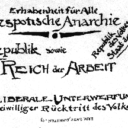 Erhabenheit für Alle
espotische Anarchie
epublik sowie
REICH DER ARBEIT
LIBERALE UNTERWERFUN
eiwilliger Rücktritt des Volk